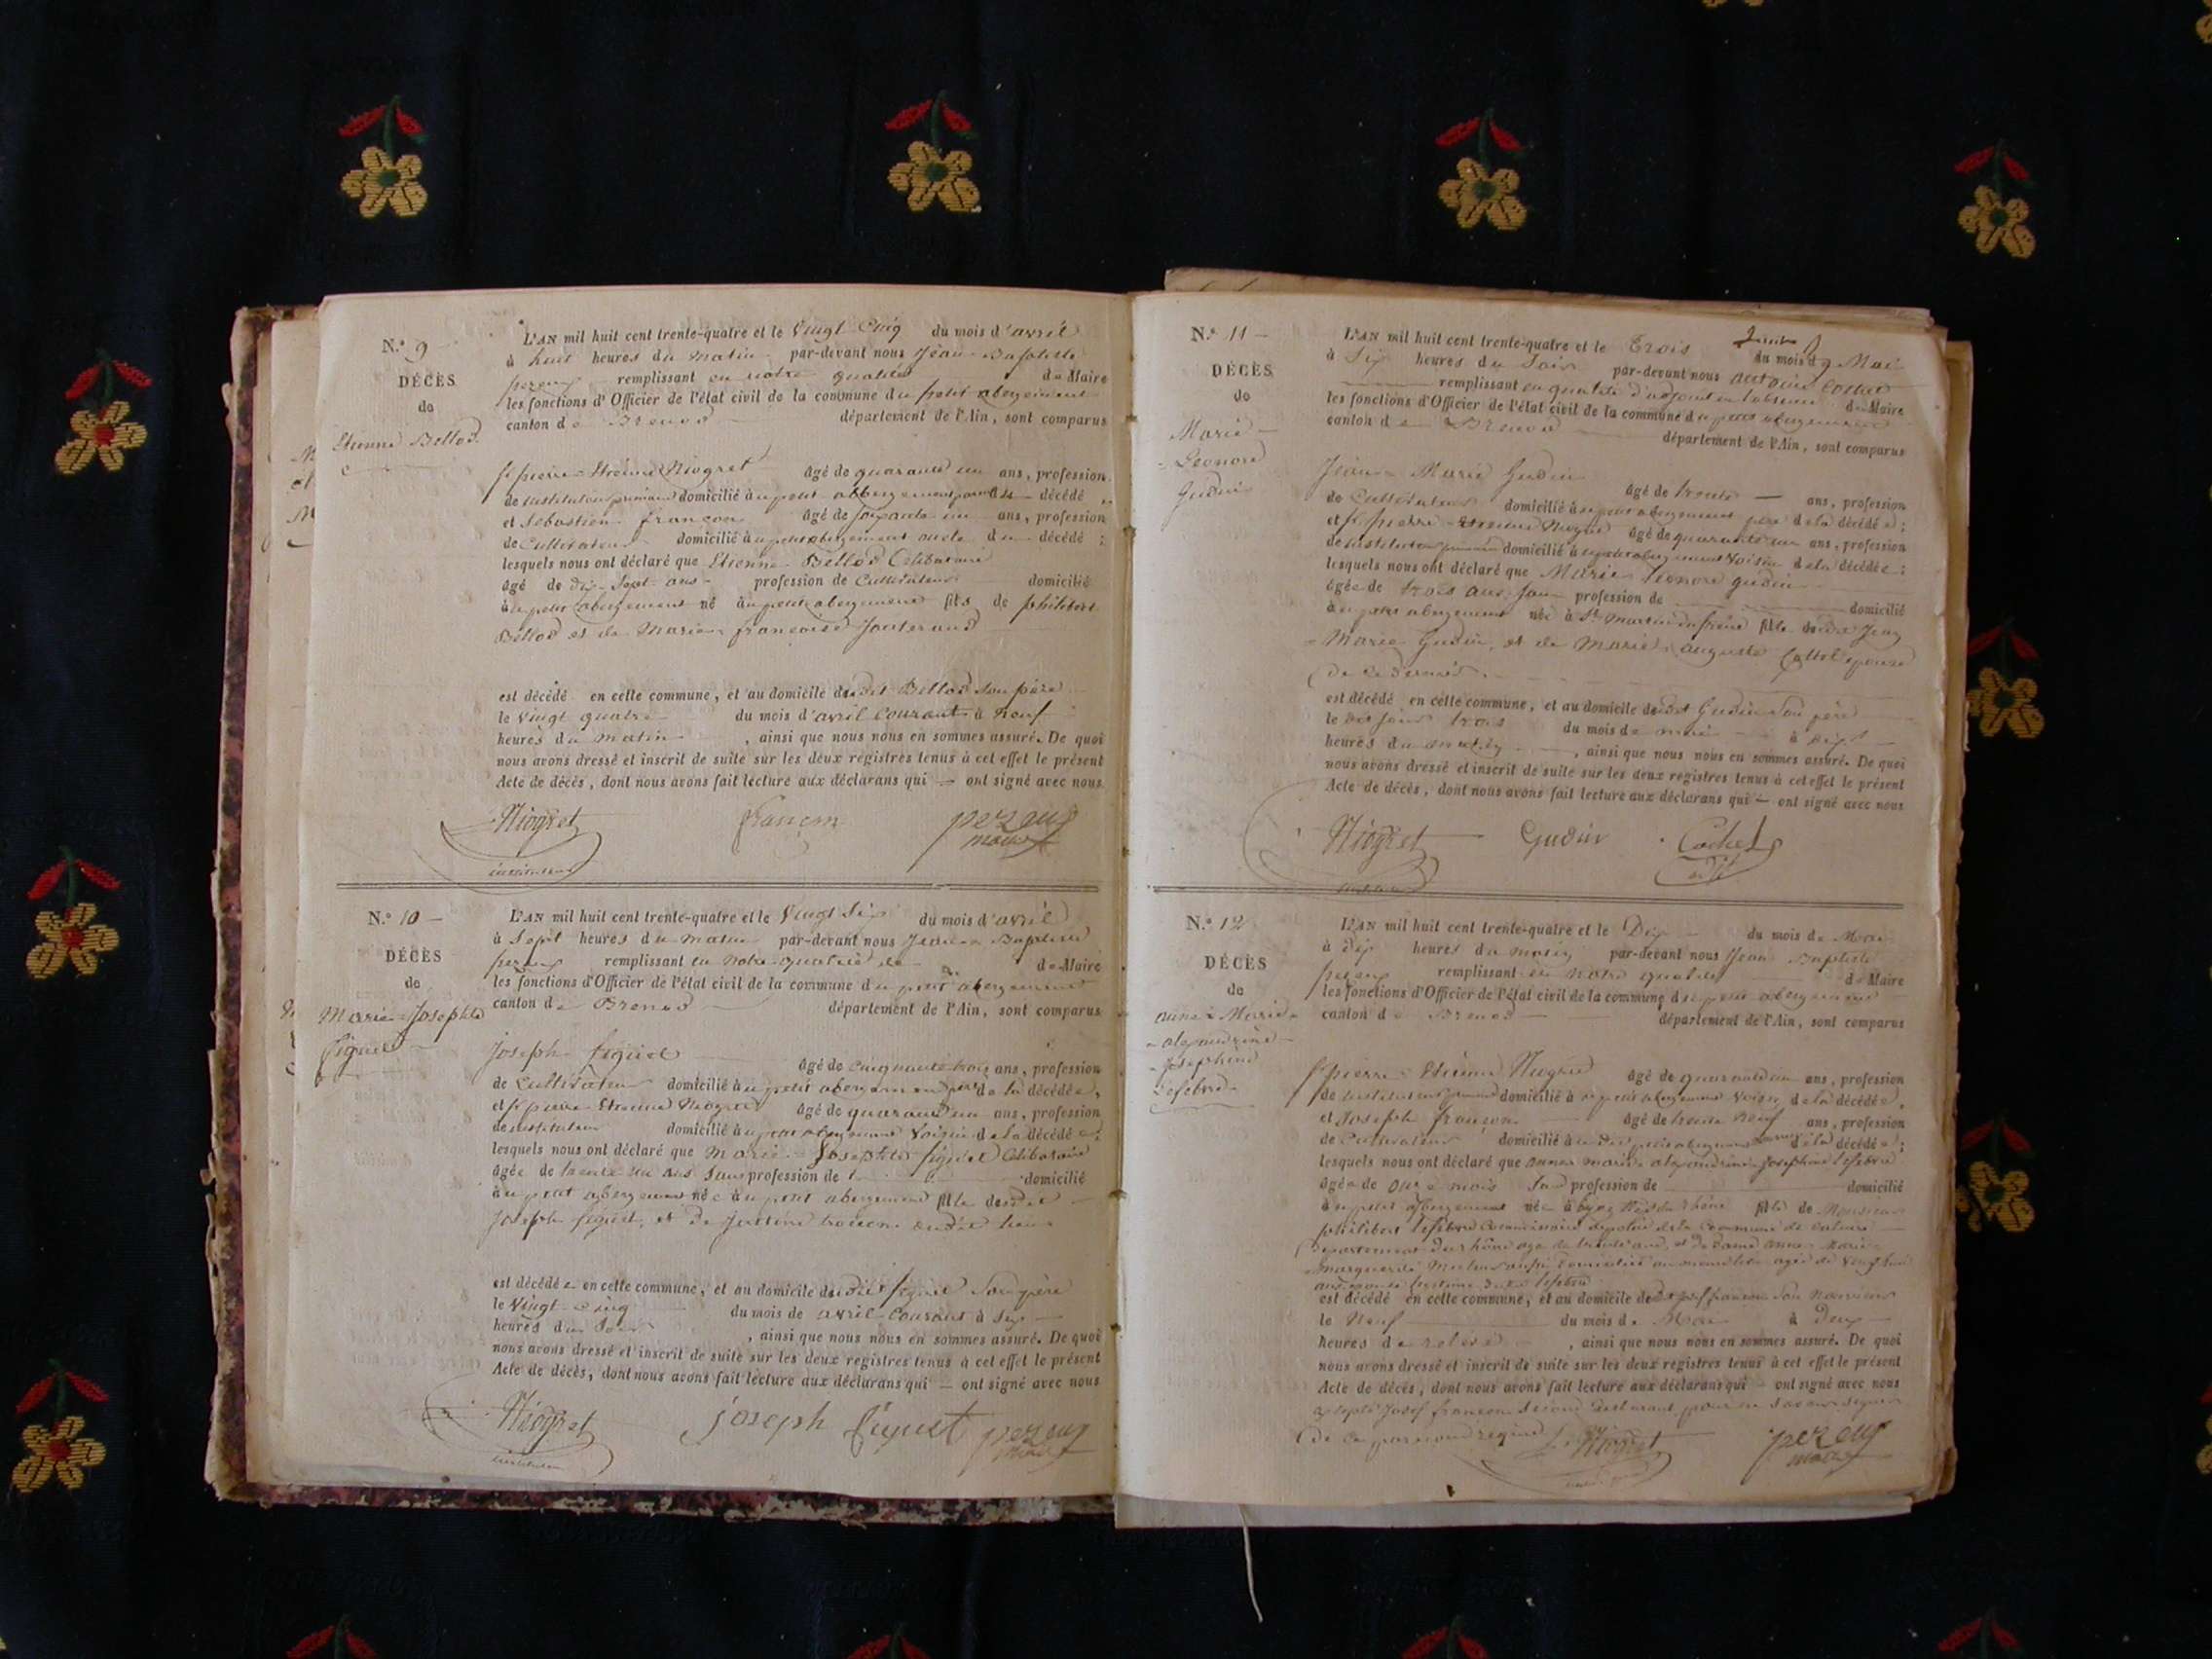 N.º 9
DÉCÈS
de
Etienne Bellod
L'AN mil huit cent trente-quatre et le Vingt Cinq du mois d'avril
à huit heures du matin par-devant nous Jean Baptiste
remplissant en notre qualité de Maire
les fonctions d'Officier de l'état civil de la commune du petit abergement
canton de Brenod département de l'Ain, sont comparus
pierre Etienne Niogret âgé de quarante un ans, profession
de instituteur primaire domicilié au petit abergement décédé
et Sébastien françon âgé de soixante un ans, profession
de Cultivateur domicilié au petit abergement oncle du décédé ;
lesquels nous ont déclaré que Etienne Bellod Célibataire
âgé de dix-sept ans profession de Cultivateur domicilié
au petit abergement né au petit abergement fils de philibert
Bellod et de Marie françoise
est décédé en cette commune, et au domicile dudit Bellod son père
le Vingt quatre du mois d'avril Courant à neuf
heures du matin , ainsi que nous nous en sommes assuré. De quoi
nous avons dressé et inscrit de suite sur les deux registres tenus à cet effet le présent
Acte de décès, dont nous avons fait lecture aux déclarans qui ont signé avec nous
Niogret françon
N.º 10
DÉCÈS
de
Marie Josephte
L'AN mil huit cent trente-quatre et le Vingt Six du mois d'avril
à Sept heures du matin par-devant nous Jean Baptiste
remplissant en notre qualité de de Maire
les fonctions d'Officier de l'état civil de la commune du petit abergement
canton de Brenod département de l'Ain, sont comparus
Joseph âgé de cinquante trois ans, profession
de Cultivateur domicilié au petit abergement père de la décédée,
et pierre Etienne Niogret âgé de quarante un ans, profession
de instituteur domicilié au petit abergement Voisin de la décédée ;
lesquels nous ont déclaré que Marie Josephte Célibataire
âgée de trente un ans Sans profession de domicilié
au petit abergement née au petit abergement fille dudit
Joseph et de
est décédée en cette commune, et au domicile dudit son père
le Vingt-cinq du mois de avril Courant à Six
heures du Soir , ainsi que nous nous en sommes assuré. De quoi
nous avons dressé et inscrit de suite sur les deux registres tenus à cet effet le présent
Acte de décès, dont nous avons fait lecture aux déclarans qui ont signé avec nous
Niogret joseph
N.º 11
DÉCÈS
de
Marie
Leonore
Gudin
L'AN mil huit cent trente-quatre et le Trois du mois de Mai
à Six heures du Soir par-devant nous antoine Cochet
remplissant en qualité d'adjoint en l'absence du Maire
les fonctions d'Officier de l'état civil de la commune du petit abergement
canton de Brenod département de l'Ain, sont comparus
Jean Marie Gudin âgé de trente ans, profession
de Cultivateur domicilié au petit abergement père de la décédée ;
et pierre Etienne Niogret âgé de quarante un ans, profession
de instituteur primaire domicilié au petit abergement Voisin de la décédée ;
lesquels nous ont déclaré que Marie Leonore Gudin
âgée de trois ans Sans profession de domicilié
au petit abergement née à St Martin du frêne fille dudit Jean
Marie Gudin, et de Marie auguste épouse
de ce dernier
est décédé en cette commune, et au domicile dudit Gudin son père
le dit jour trois du mois de mai à
heures du matin , ainsi que nous nous en sommes assuré. De quoi
nous avons dressé et inscrit de suite sur les deux registres tenus à cet effet le présent
Acte de décès, dont nous avons fait lecture aux déclarans qui ont signé avec nous
Niogret Gudin Cochet
N.º 12
DÉCÈS
de
anne Marie
alexandrine
Josephine
Lefebvre
L'AN mil huit cent trente-quatre et le Dix du mois de Mai
à dix heures du matin par-devant nous Jean Baptiste
remplissant en notre qualité de Maire
les fonctions d'Officier de l'état civil de la commune du petit abergement
canton de Brenod département de l'Ain, sont comparus
pierre Etienne Niogret âgé de quarante un ans, profession
de instituteur primaire domicilié au petit abergement Voisin de la décédée,
et Joseph françon âgé de trente neuf ans, profession
de Cultivateur domicilié au dit petit abergement de la décédée ;
lesquels nous ont déclaré que anne marie alexandrine Josephine lefebvre
âgée de onze mois Sans profession de domicilié
au petit abergement née à fille de Monsieur
philibert lefebvre Commissaire de police de la Commune de
Departement du rhône agé de trente ans, et de Dame anne Marie
est décédé en cette commune, et au domicile dudit françon son nourricier
le Neuf du mois de Mai à Deux
heures de , ainsi que nous nous en sommes assuré. De quoi
nous avons dressé et inscrit de suite sur les deux registres tenus à cet effet le présent
Acte de décès, dont nous avons fait lecture aux déclarans qui ont signé avec nous
excepté Josef françon Second déclarant pour ne Savoir signer
de ce par nous requis Niogret